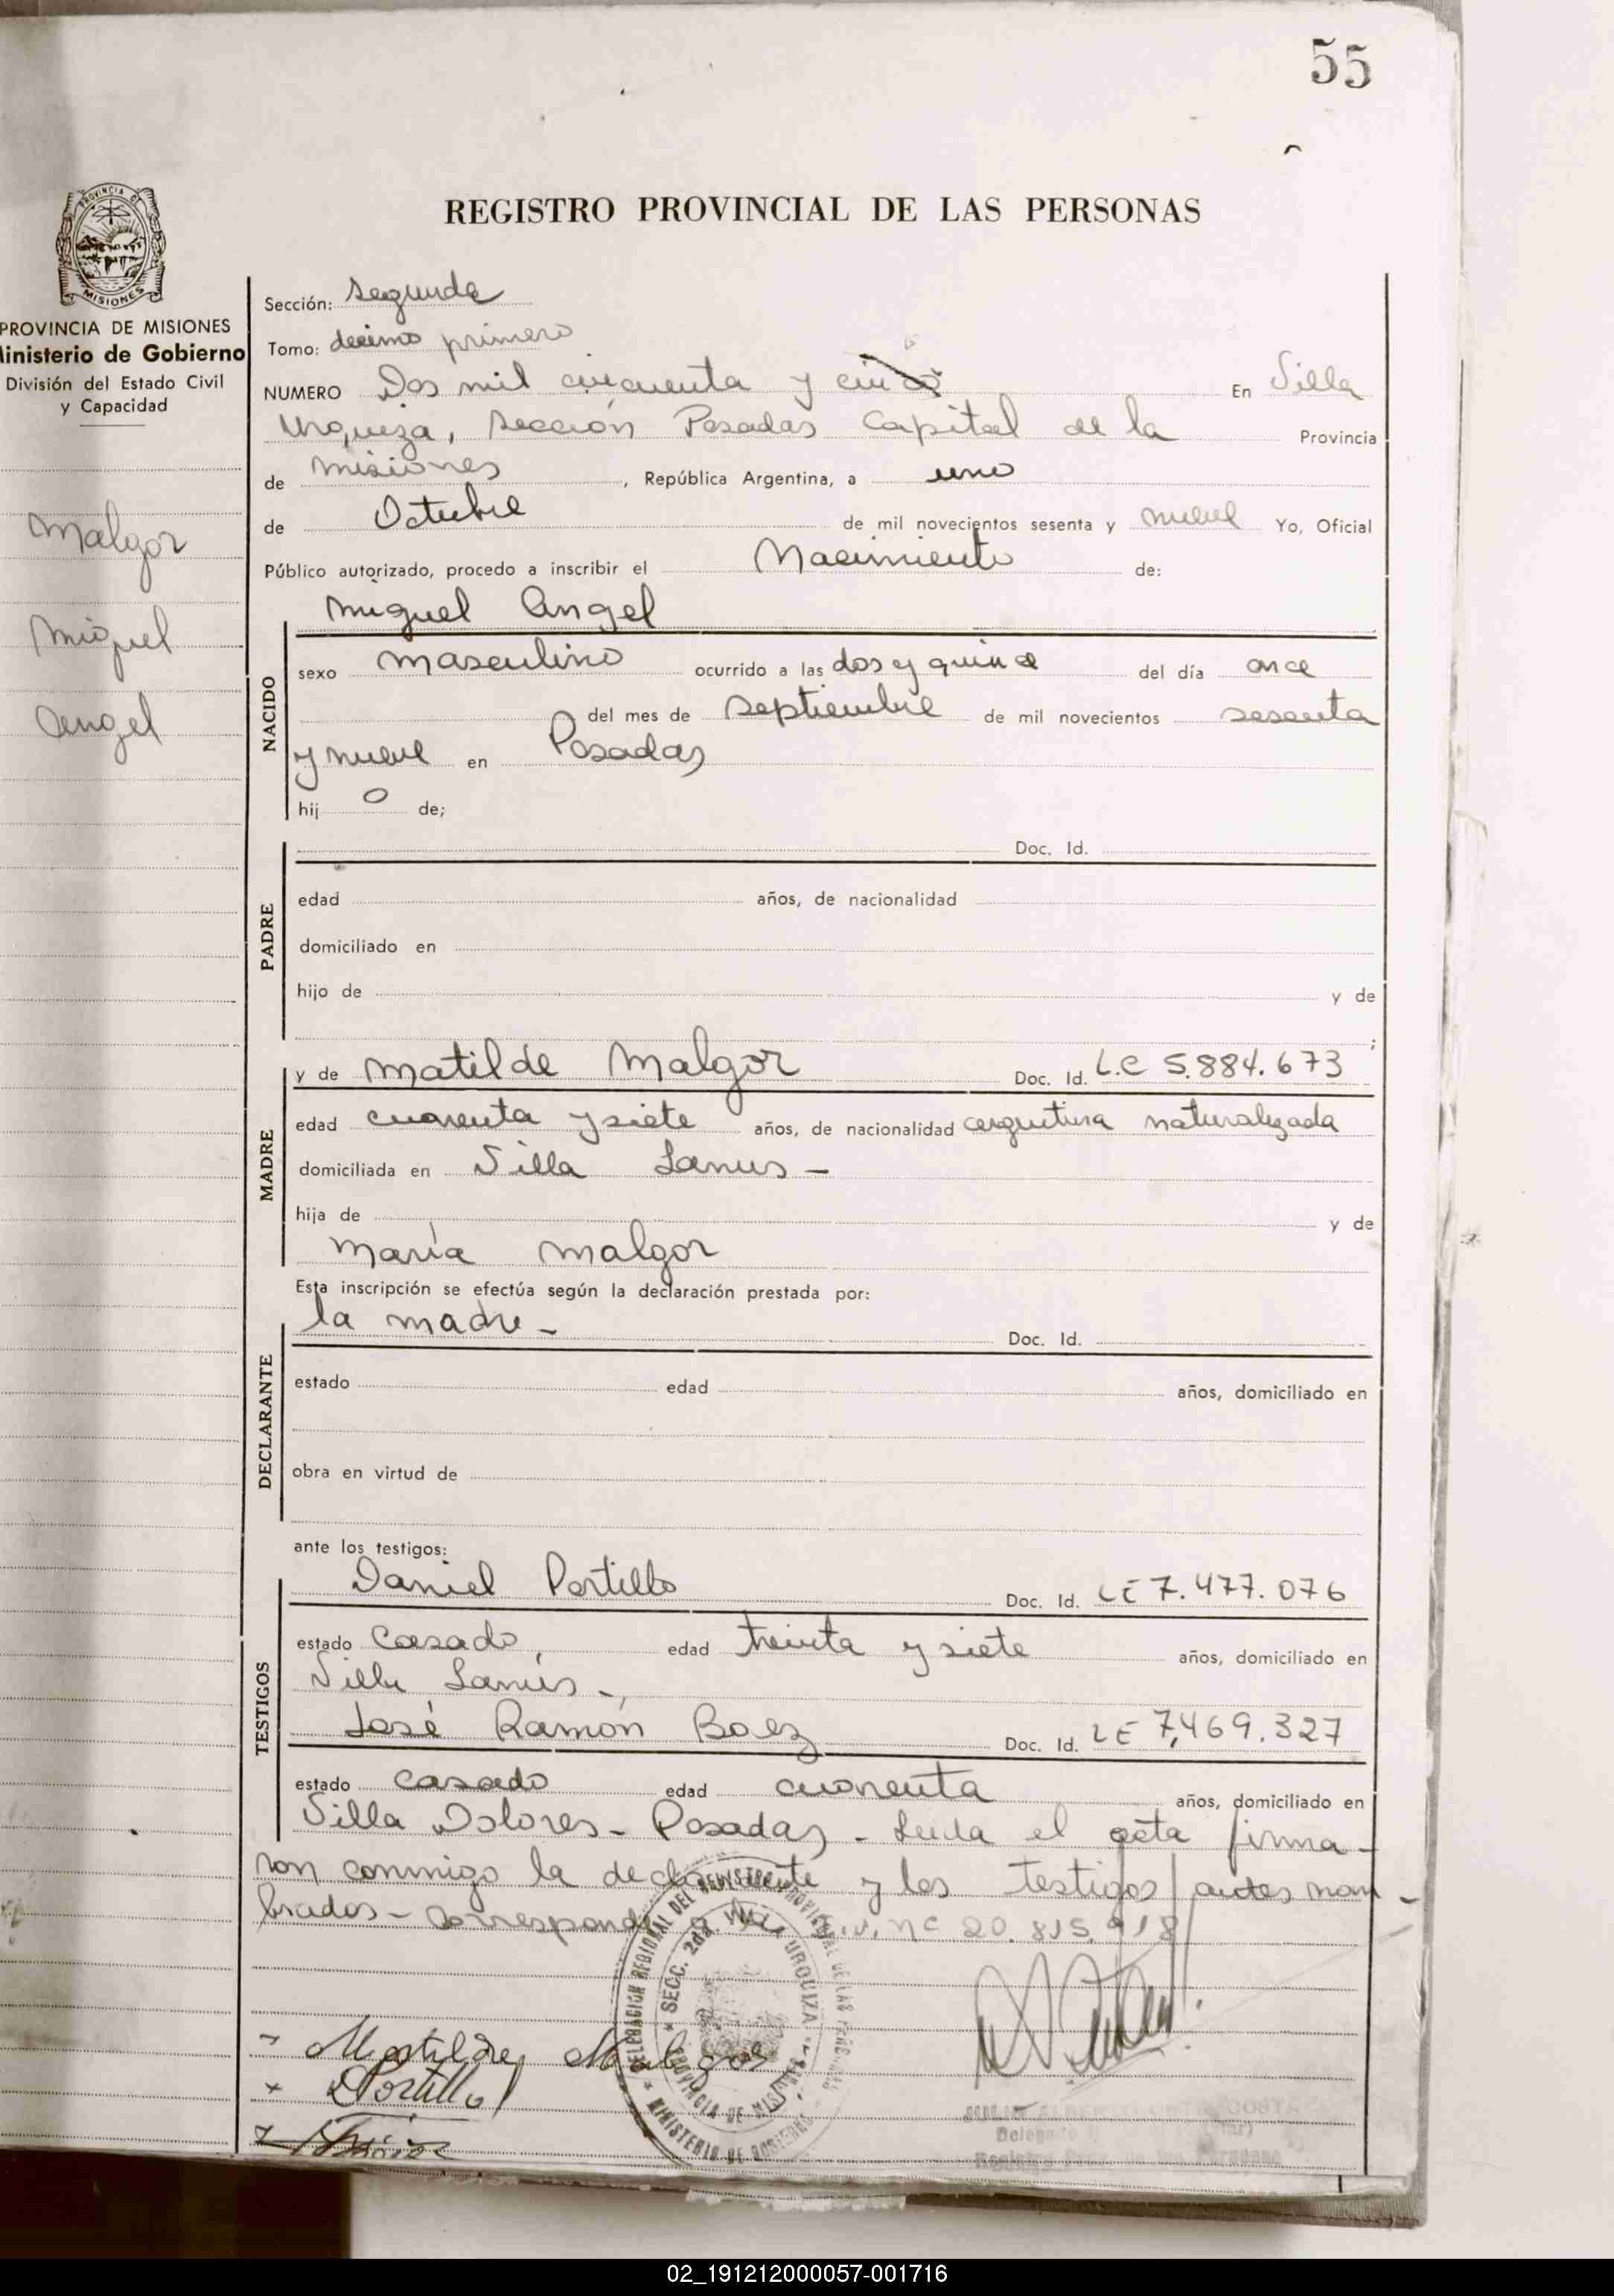 55
REGISTRO PROVINCIAL DE LAS PERSONAS
PROVINCIA DE
MISIONES
PROVINCIA DE MISIONES
Ministerio de Gobierno
División del Estado Civil
y Capacidad
Malgor
Miguel
Angel
Sección: Segunda
Tomo: decimo primero
NUMERO Dos mil cincuenta y cinco En Villa
Urquiza, Sección Posadas Capital de la Provincia
de Misiones, República Argentina, a uno
de Octubre de mil novecientos sesenta y nueve Yo, Oficial
Público autorizado, procedo a inscribir el Nacimiento de:
Miguel Angel
NACIDO
sexo masculino ocurrido a las dos y quince del día once
del mes de septiembre de mil novecientos sesenta
y nueve en Posadas
hij o de;
PADRE
Doc. Id.
edad años, de nacionalidad
domiciliado en
hijo de y de
;
MADRE
y de Matilde Malgor Doc. Id. L.C 5.884.673
edad cuarenta y siete años, de nacionalidad argentina naturalizada
domiciliada en Villa Lanus -
hija de y de
María Malgor
Esta inscripción se efectúa según la declaración prestada por:
DECLARANTE
la madre - Doc. Id.
estado edad años, domiciliado en
obra en virtud de
ante los testigos:
TESTIGOS
Daniel Portillo Doc. Id. LE 7.477.076
estado Casado, edad treinta y siete años, domiciliado en
Villa Lanús -
José Ramón Baez Doc. Id. LE 7.469.327
estado casado edad cuarenta años, domiciliado en
Villa Dolores - Posadas - Leida el acta firma-
ron conmigo la declarante y los testigos antes nom-
brados - Corresponde nº 20.815.918
DELEGACION REGIONAL DEL REGISTRO PROVINCIAL DE LAS PERSONAS
SECC. 2da. VILLA URQUIZA
PROVINCIA DE MISIONES
MINISTERIO DE GOBIERNO
Matilde Malgor
DPortillo
COSTA
Delegado
02_191212000057-001716